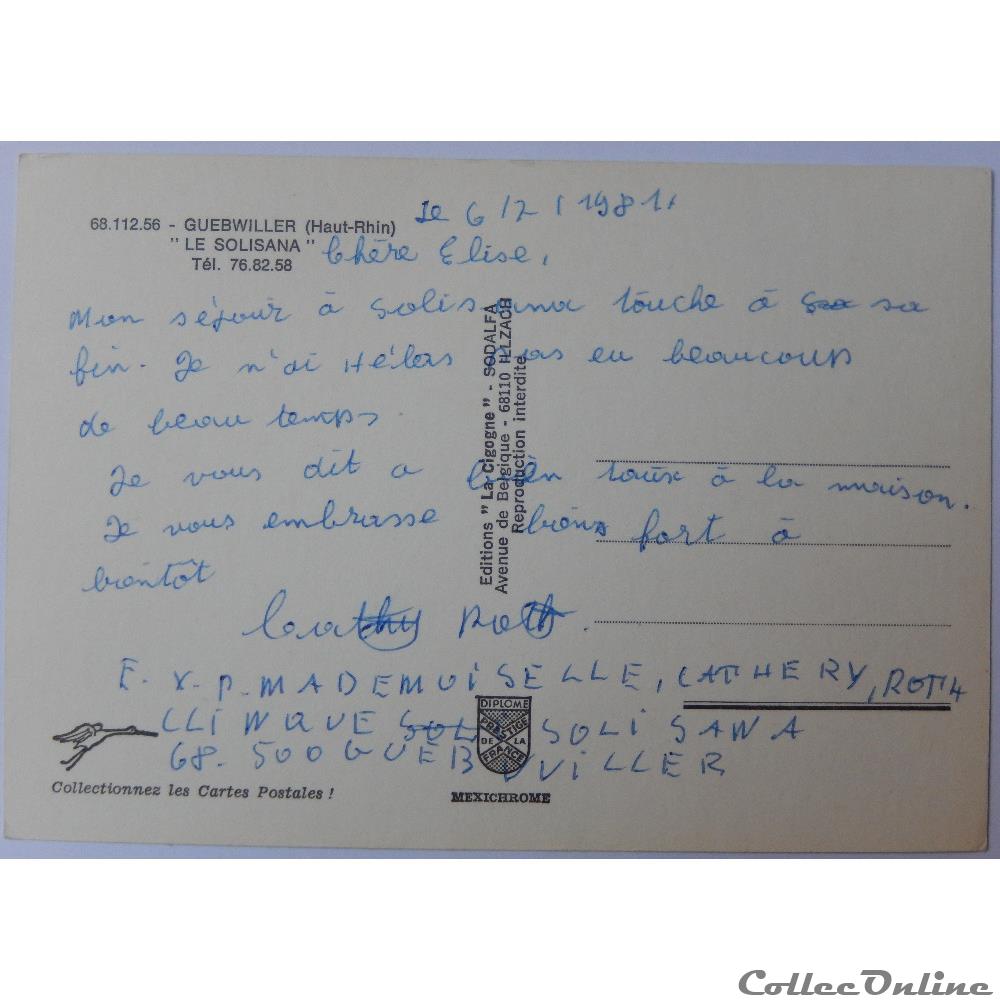 le 6/2/1981.
68.112.56 - GUEBWILLER (Haut-Rhin)
" LE SOLISANA "
Tél. 76.82.58
Chère Elise,
Mon séjour à Solisana touche à sa
fin. Je n'ai Hélas pas eu beaucoup
de beau temps.
Je vous dit a bien toux à la maison.
Je vous embrasse biens fort à
bientôt
Cathy Roth.
E. X. P. MADEMOISELLE, CATHERY, ROTH
CLINQUE SOL SOLISANA
68. 500 GUEBWILLER
Editions " La Cigogne " - SODALFA
Avenue de Belgique - 68110 ILLZACH
Reproduction interdite
DIPLOME
PRESTIGE
DE LA
FRANCE
Collectionnez les Cartes Postales !
MEXICHROME
CollecOnline